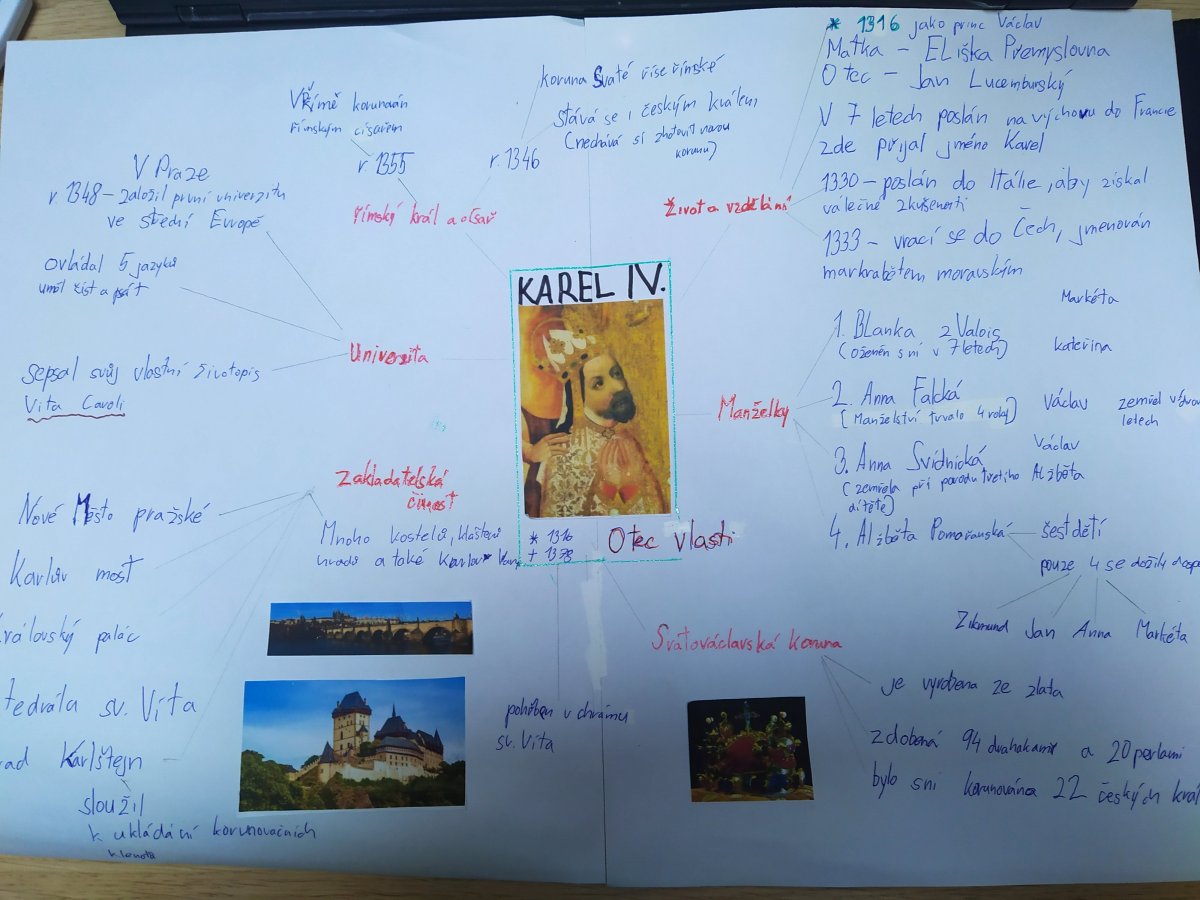 KAREL IV.
* 1316
† 1378
Otec vlasti
Život a vzdělání
* 1316 jako princ Václav
Matka - Eliška Přemyslovna
Otec - Jan Lucemburský
V 7 letech poslán na výchovu do Francie
zde přijal jméno Karel
1330 - poslán do Itálie, aby získal
válečné zkušenosti
1333 - vrací se do Čech, jmenován
markrabětem moravským
Manželky
1. Blanka z Valois
(oženěn s ní v 7 letech)
Markéta
kateřina
2. Anna Falcká
(Manželství trvalo 4 roky)
Václav
zemřel v
letech
3. Anna Svídnická
(zemřela při porodu třetího
dítěte)
Václav
Alžběta
4. Alžběta Pomořanská
šest dětí
pouze 4 se dožily
Zikmund Jan Anna Markéta
Svatováclavská koruna
je vyrobena ze zlata
zdobená 94 drahokamy a 20 perlami
bylo s ní korunováno 22 českých
pohřben v chrámu
sv. Víta
Zakladatelská
činnost
Mnoho kostelů, klášterů
hradů a také
Nové Město pražské
Karlův most
palác
sv. Víta
Karlštejn
sloužil
k ukládání korunovačních
klenotů
Univerzita
V Praze
r. 1348 - založil první univerzitu
ve střední Evropě
ovládal 5 jazyků
uměl číst a psát
sepsal svůj vlastní životopis
Vita Caroli
římský král a císař
r. 1355
V Římě korunován
římským císařem
r. 1346
koruna Svaté říše římské
stává se i českým králem
(nechává si zhotovit novou
korunu)